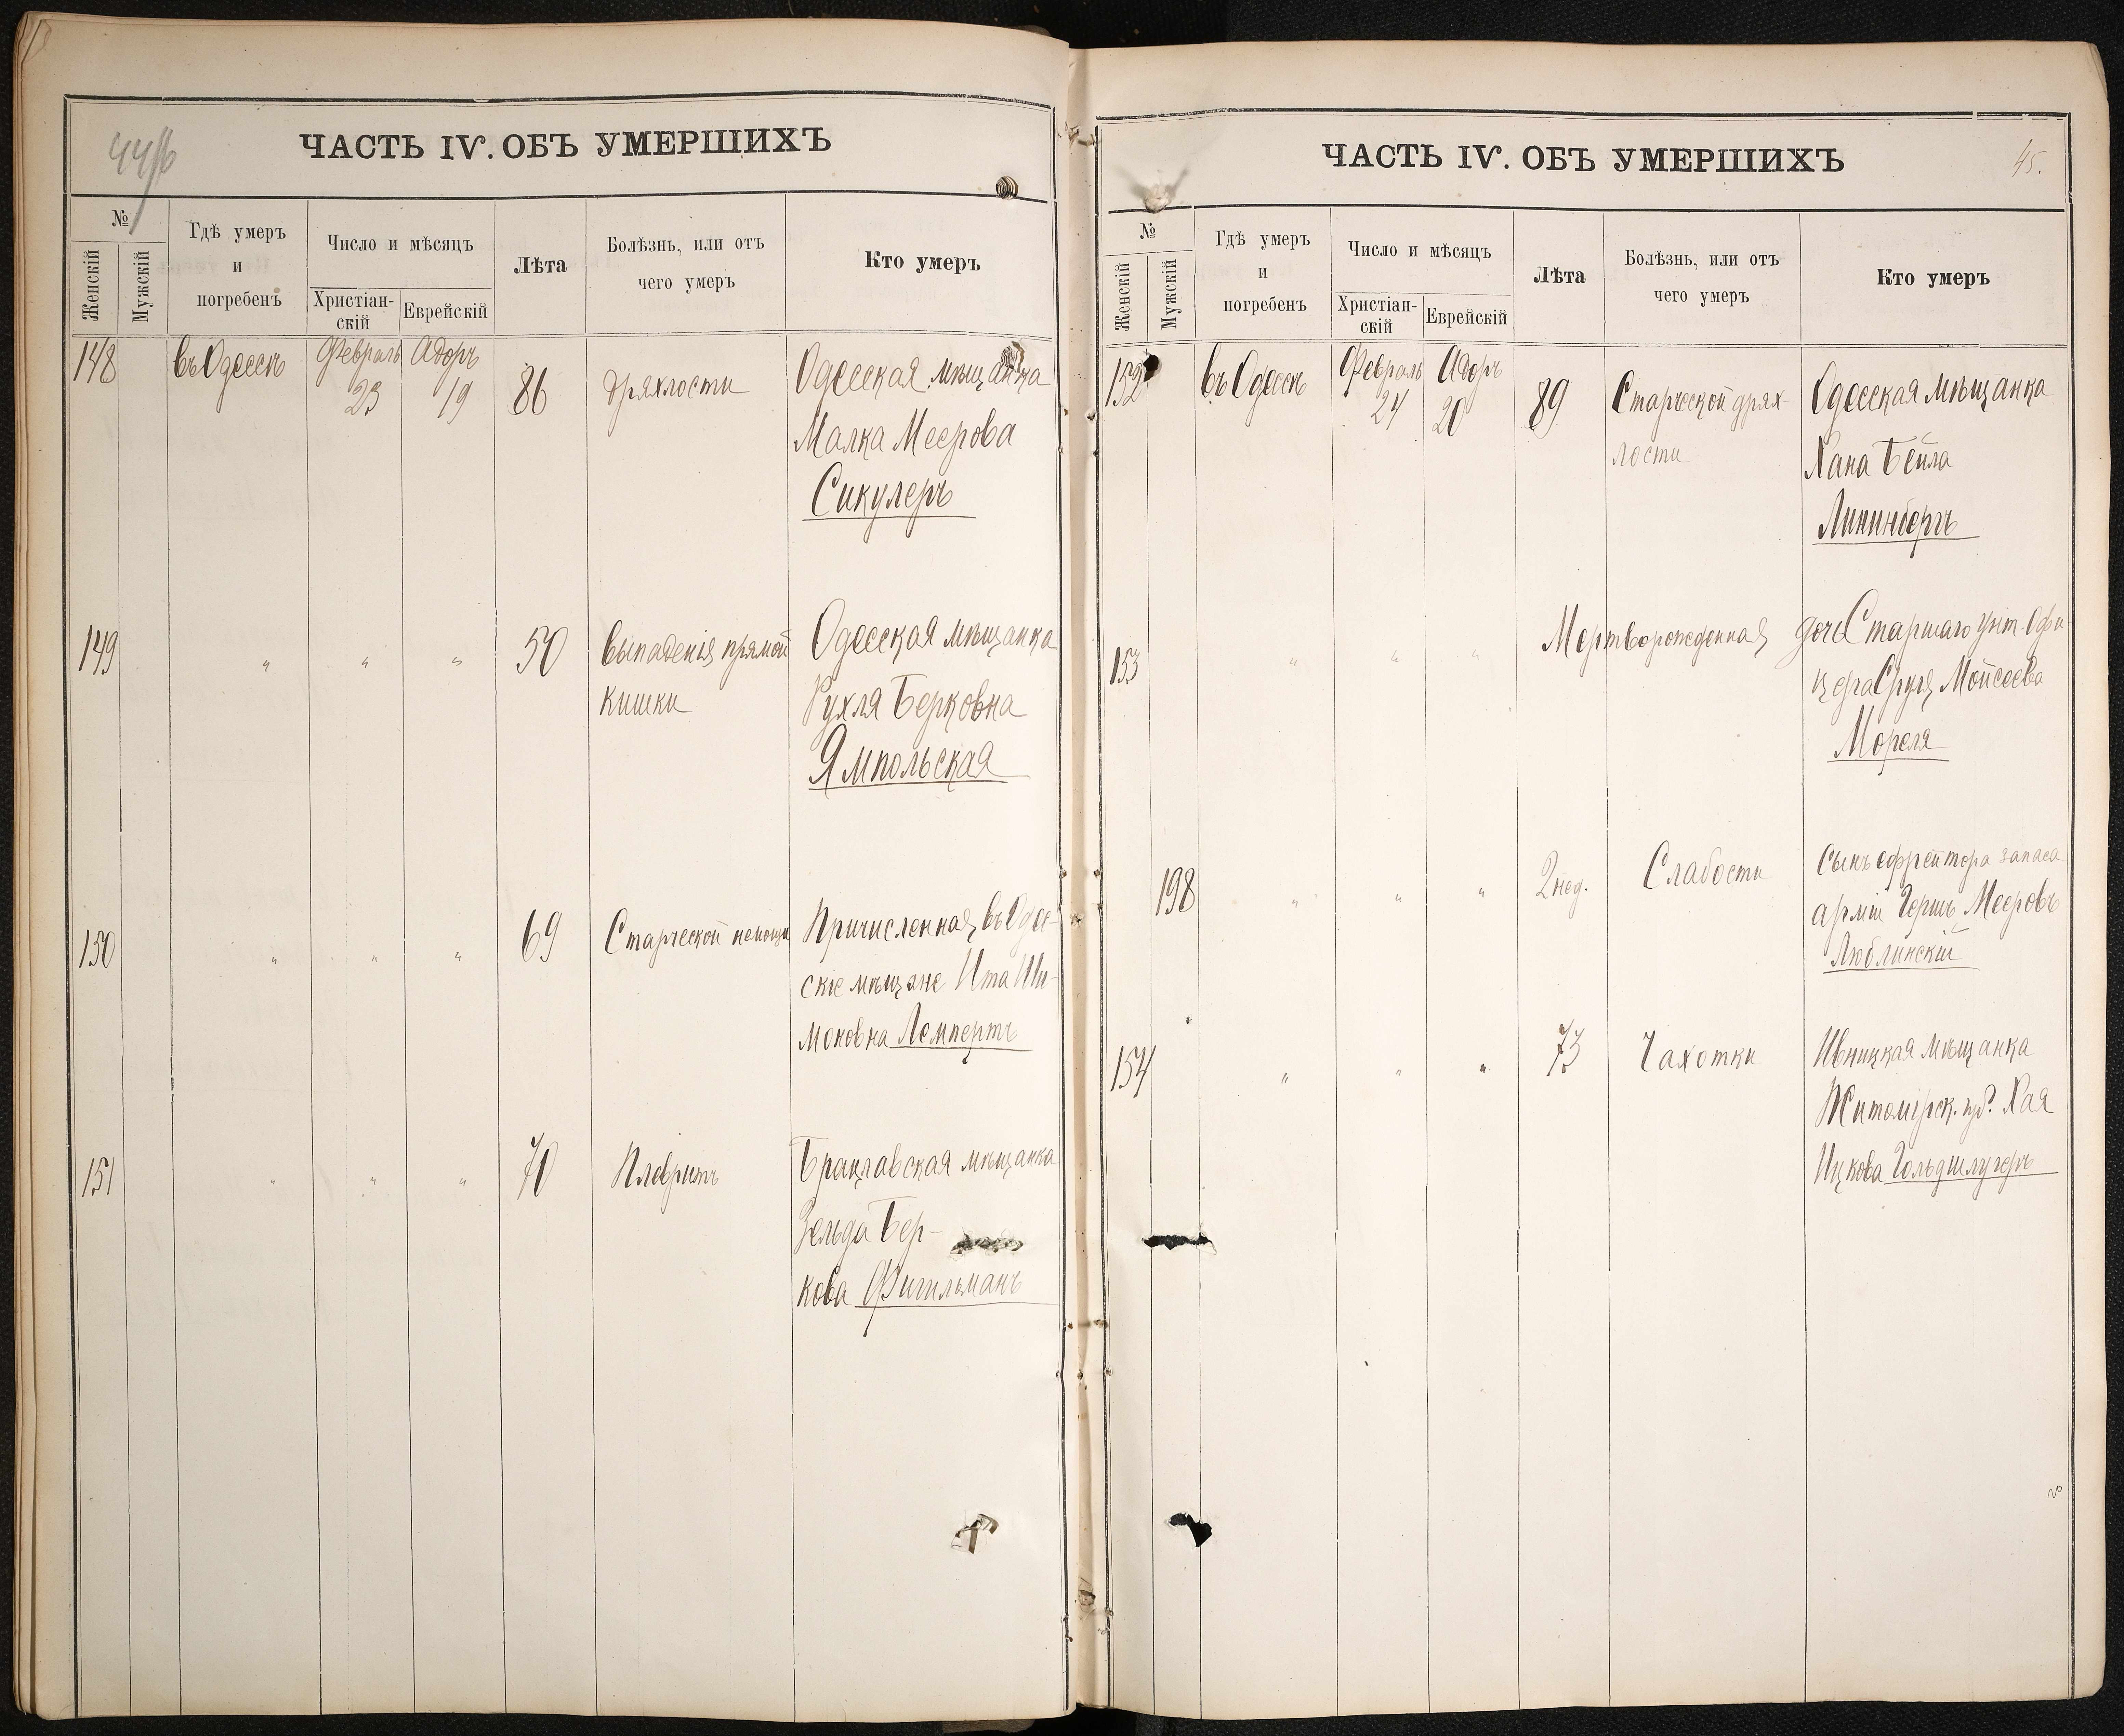 44/б
ЧАСТЬ IV. ОБЪ УМЕРШИХЪ
№
Женскій
Мужскій
Гдѣ умеръ
и
погребенъ
Число и мѣсяцъ
Христіан-
скій
Еврейскій
Лѣта
Болѣзнь, или отъ
чего умеръ
Кто умеръ
148 въ Одессѣ Февраль Адоръ
23 19 86 дряхлости Одесская мѣщанка
Малка Меерова
Сикулеръ
149 " " " 50 выпаденія прямой Одесская мѣщанка
кишки Рухля Берковна
Ямпольская
150 " " " 69 Старческой немощи Причисленная въ Одес-
скіе мѣщане Ита Ши-
моновна Лемпертъ
151 " " " 70 Плевритъ Брацлавская мѣщанка
Зельда Бер-
кова Фигильманъ
ЧАСТЬ IV. ОБЪ УМЕРШИХЪ
45.
№
Женскій
Мужскій
Гдѣ умеръ
и
погребенъ
Число и мѣсяцъ
Христіан-
скій
Еврейскій
Лѣта
Болѣзнь, или отъ
чего умеръ
Кто умеръ
152 въ Одессѣ Февраль Адоръ
24 20 89 Старческой дрях- Одесская мѣщанка
лости Хана Бейла
Лининбергъ
153 " " " Мертворожденная дочь Старшаго унт. Офи-
цера Сруля Мойсеева
Мореля
198 " " " 2 нед. Слабости Сынъ ефрейтора запаса
арміи Гершъ Мееровъ
Люблинскій
154 " " " 73 Чахотки Ивницкая мѣщанка
Житомірск. уѣ. Хая
Ицкова Гольдшлугеръ